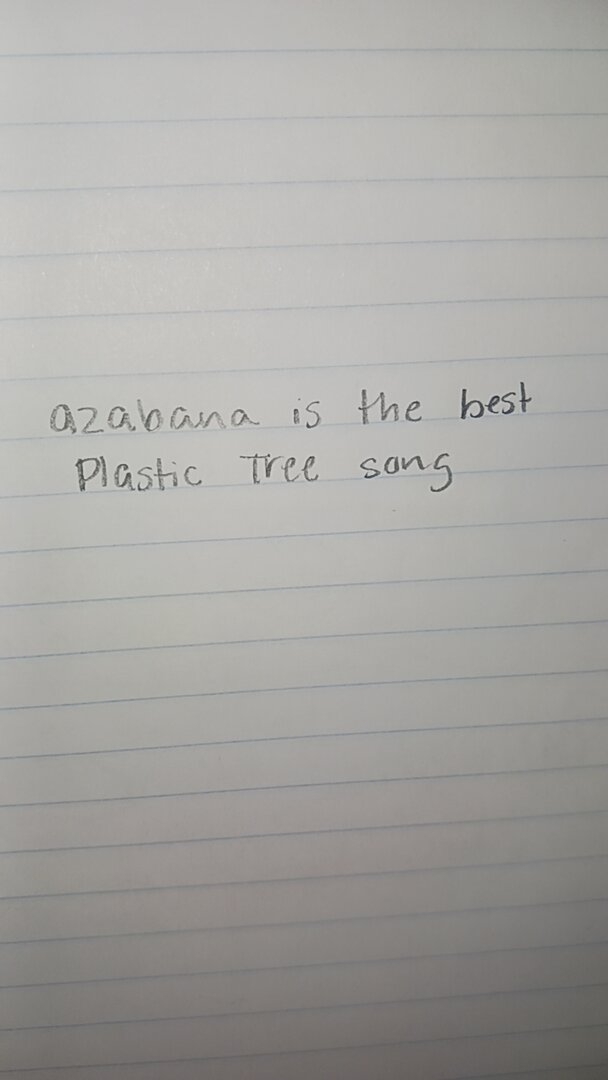 azabana is the best
Plastic Tree song